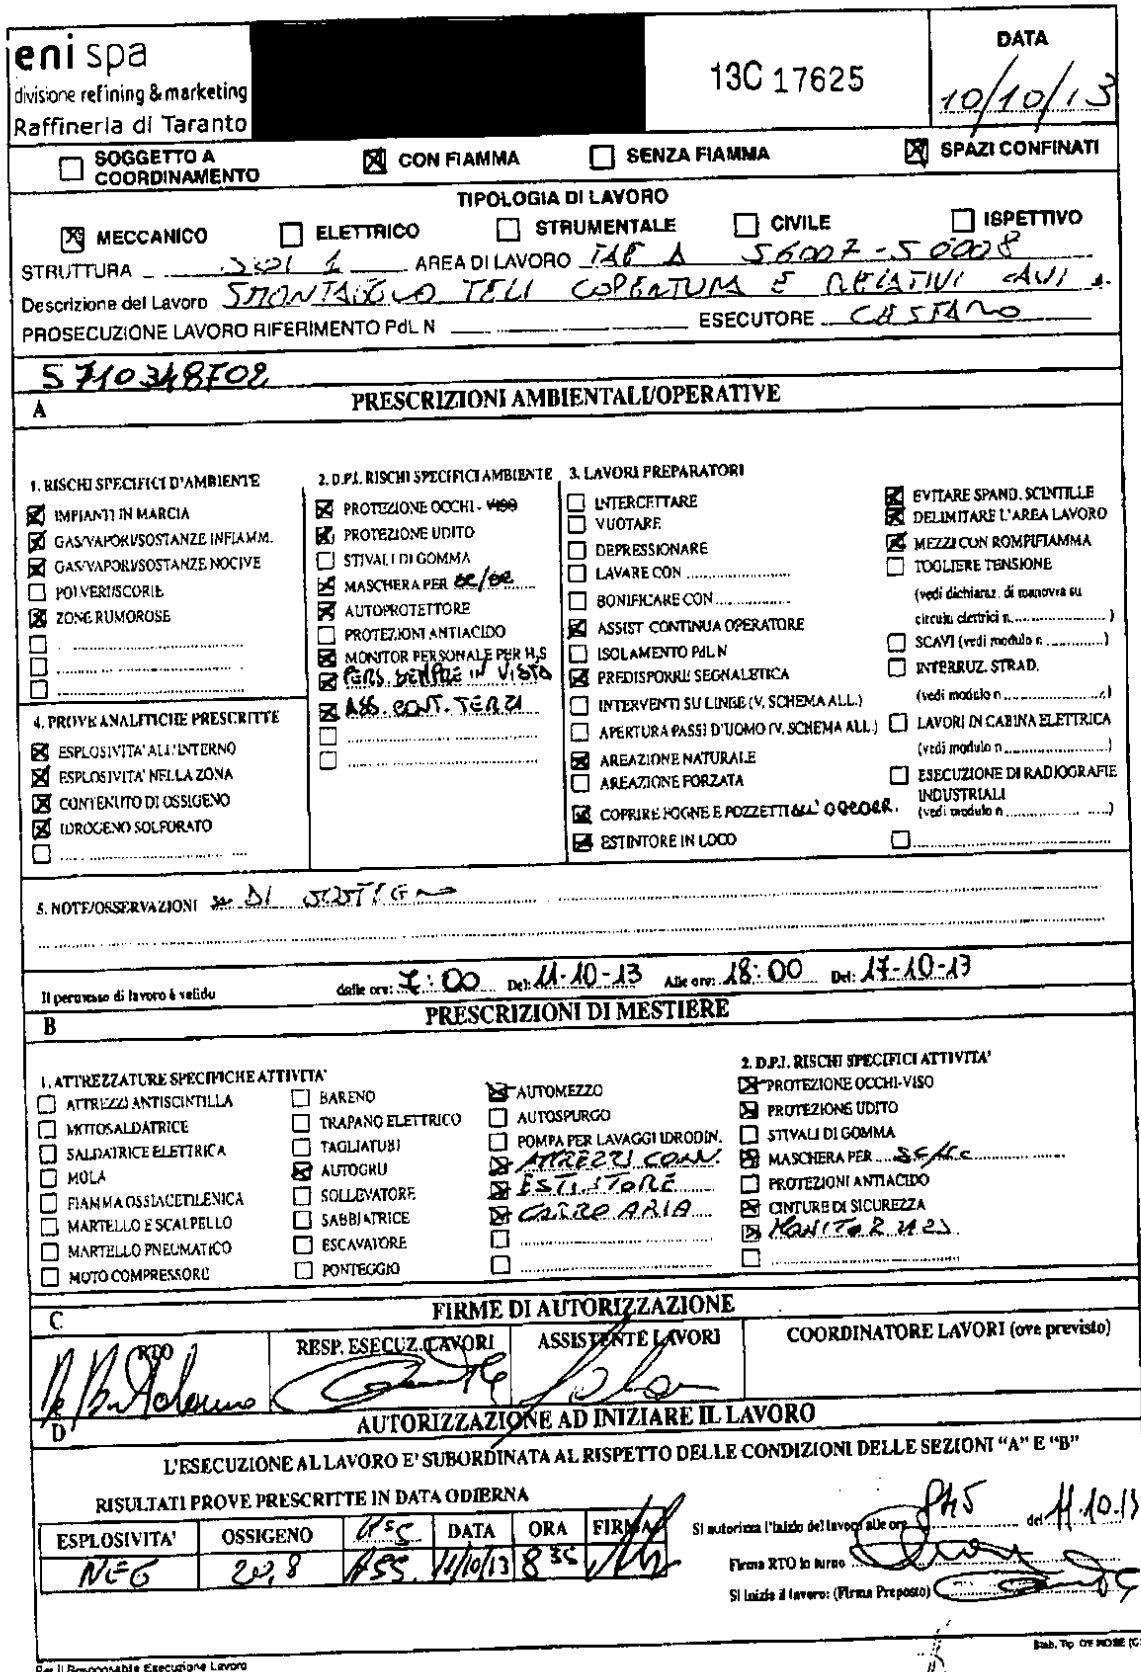 eni spa
divisione refining & marketing
Raffineria di Taranto
13C 17625
DATA
10/10/13
SOGGETTO A COORDINAMENTO
CON FIAMMA
SENZA FIAMMA
SPAZI CONFINATI
TIPOLOGIA DI LAVORO
MECCANICO
ELETTRICO
STRUMENTALE
CIVILE
ISPETTIVO
STRUTTURA
AREA DI LAVORO
Descrizione del Lavoro SMONTAGGIO TELI COPERTURA E RELATIVI CAVI
PROSECUZIONE LAVORO RIFERIMENTO PdL N
ESECUTORE
A
PRESCRIZIONI AMBIENTALI/OPERATIVE
1. RISCHI SPECIFICI D'AMBIENTE
IMPIANTI IN MARCIA
GAS/VAPORI/SOSTANZE INFIAMM.
GAS/VAPORI/SOSTANZE NOCIVE
POLVERI/SCORIE
ZONE RUMOROSE
2. D.P.I. RISCHI SPECIFICI AMBIENTE
PROTEZIONE OCCHI - VISO
PROTEZIONE UDITO
STIVALI DI GOMMA
MASCHERA PER
AUTOPROTETTORE
PROTEZIONI ANTIACIDO
MONITOR PERSONALE PER H2S
PERS. SEMPRE IN VISTA
ASS. CONT. TERZI
3. LAVORI PREPARATORI
INTERCETTARE
VUOTARE
DEPRESSIONARE
LAVARE CON
BONIFICARE CON
ASSIST CONTINUA OPERATORE
ISOLAMENTO PdL N
PREDISPORRE SEGNALETICA
INTERVENTI SU LINEE (V. SCHEMA ALL.)
APERTURA PASSI D'UOMO (V. SCHEMA ALL.)
AREAZIONE NATURALE
AREAZIONE FORZATA
COPRIRE FOGNE E POZZETTI ALL'OCCORR.
ESTINTORE IN LOCO
EVITARE SPAND. SCINTILLE
DELIMITARE L'AREA LAVORO
MEZZI CON ROMPIFIAMMA
TOGLIERE TENSIONE
(vedi dichiaraz. di manovra su
circuiti elettrici n. )
SCAVI (vedi modulo n. )
INTERRUZ. STRAD.
(vedi modulo n. )
LAVORI IN CABINA ELETTRICA
(vedi modulo n. )
ESECUZIONE DI RADIOGRAFIE
INDUSTRIALI
(vedi modulo n. )
4. PROVE ANALITICHE PRESCRITTE
ESPLOSIVITA' ALL'INTERNO
ESPLOSIVITA' NELLA ZONA
CONTENUTO DI OSSIGENO
IDROGENO SOLFORATO
5. NOTE/OSSERVAZIONI * DI SOSTEGNO
Il permesso di lavoro è valido dalle ore: 7:00 Del: 11-10-13 Alle ore: 18:00 Del: 17-10-13
B
PRESCRIZIONI DI MESTIERE
1. ATTREZZATURE SPECIFICHE ATTIVITA'
ATTREZZI ANTISCINTILLA
MOTOSALDATRICE
SALDATRICE ELETTRICA
MOLA
FIAMMA OSSIACETILENICA
MARTELLO E SCALPELLO
MARTELLO PNEUMATICO
MOTO COMPRESSORE
BARENO
TRAPANO ELETTRICO
TAGLIATUBI
AUTOGRU
SOLLEVATORE
SABBIATRICE
ESCAVATORE
PONTEGGIO
AUTOMEZZO
AUTOSPURGO
POMPA PER LAVAGGI IDRODIN.
ATTREZZI COMN.
ESTINTORE
CARRO ARIA
2. D.P.I. RISCHI SPECIFICI ATTIVITA'
PROTEZIONE OCCHI-VISO
PROTEZIONE UDITO
STIVALI DI GOMMA
MASCHERA PER
PROTEZIONI ANTIACIDO
CINTURE DI SICUREZZA
MONITOR
C
FIRME DI AUTORIZZAZIONE
RTO
RESP. ESECUZ. LAVORI
ASSISTENTE LAVORI
COORDINATORE LAVORI (ove previsto)
D
AUTORIZZAZIONE AD INIZIARE IL LAVORO
L'ESECUZIONE AL LAVORO E' SUBORDINATA AL RISPETTO DELLE CONDIZIONI DELLE SEZIONI "A" E "B"
RISULTATI PROVE PRESCRITTE IN DATA ODIERNA
ESPLOSIVITA' OSSIGENO H2S DATA ORA FIRMA
NEG 20,8 ASS. 11/10/13 8 35
Si autorizza l'inizio del lavoro alle ore 845 del 11.10.13
Firma RTO in turno
Si inizia il lavoro: (Firma Preposto)
Per il Responsabile Esecuzione Lavoro